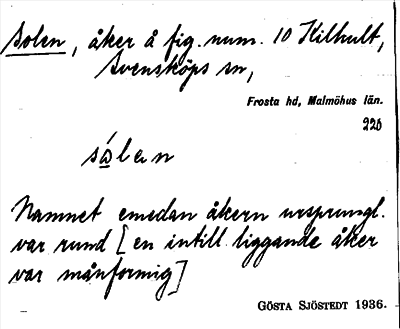 Solen, åker å fig. num. 10 Kilhult,
Svensköps sn,
Frosta hd, Malmöhus län.
226
sólen
Namnet emedan åkern ursprungl.
var rund [en intill liggande åker
var månformig]
GÖSTA SJÖSTEDT 1936.